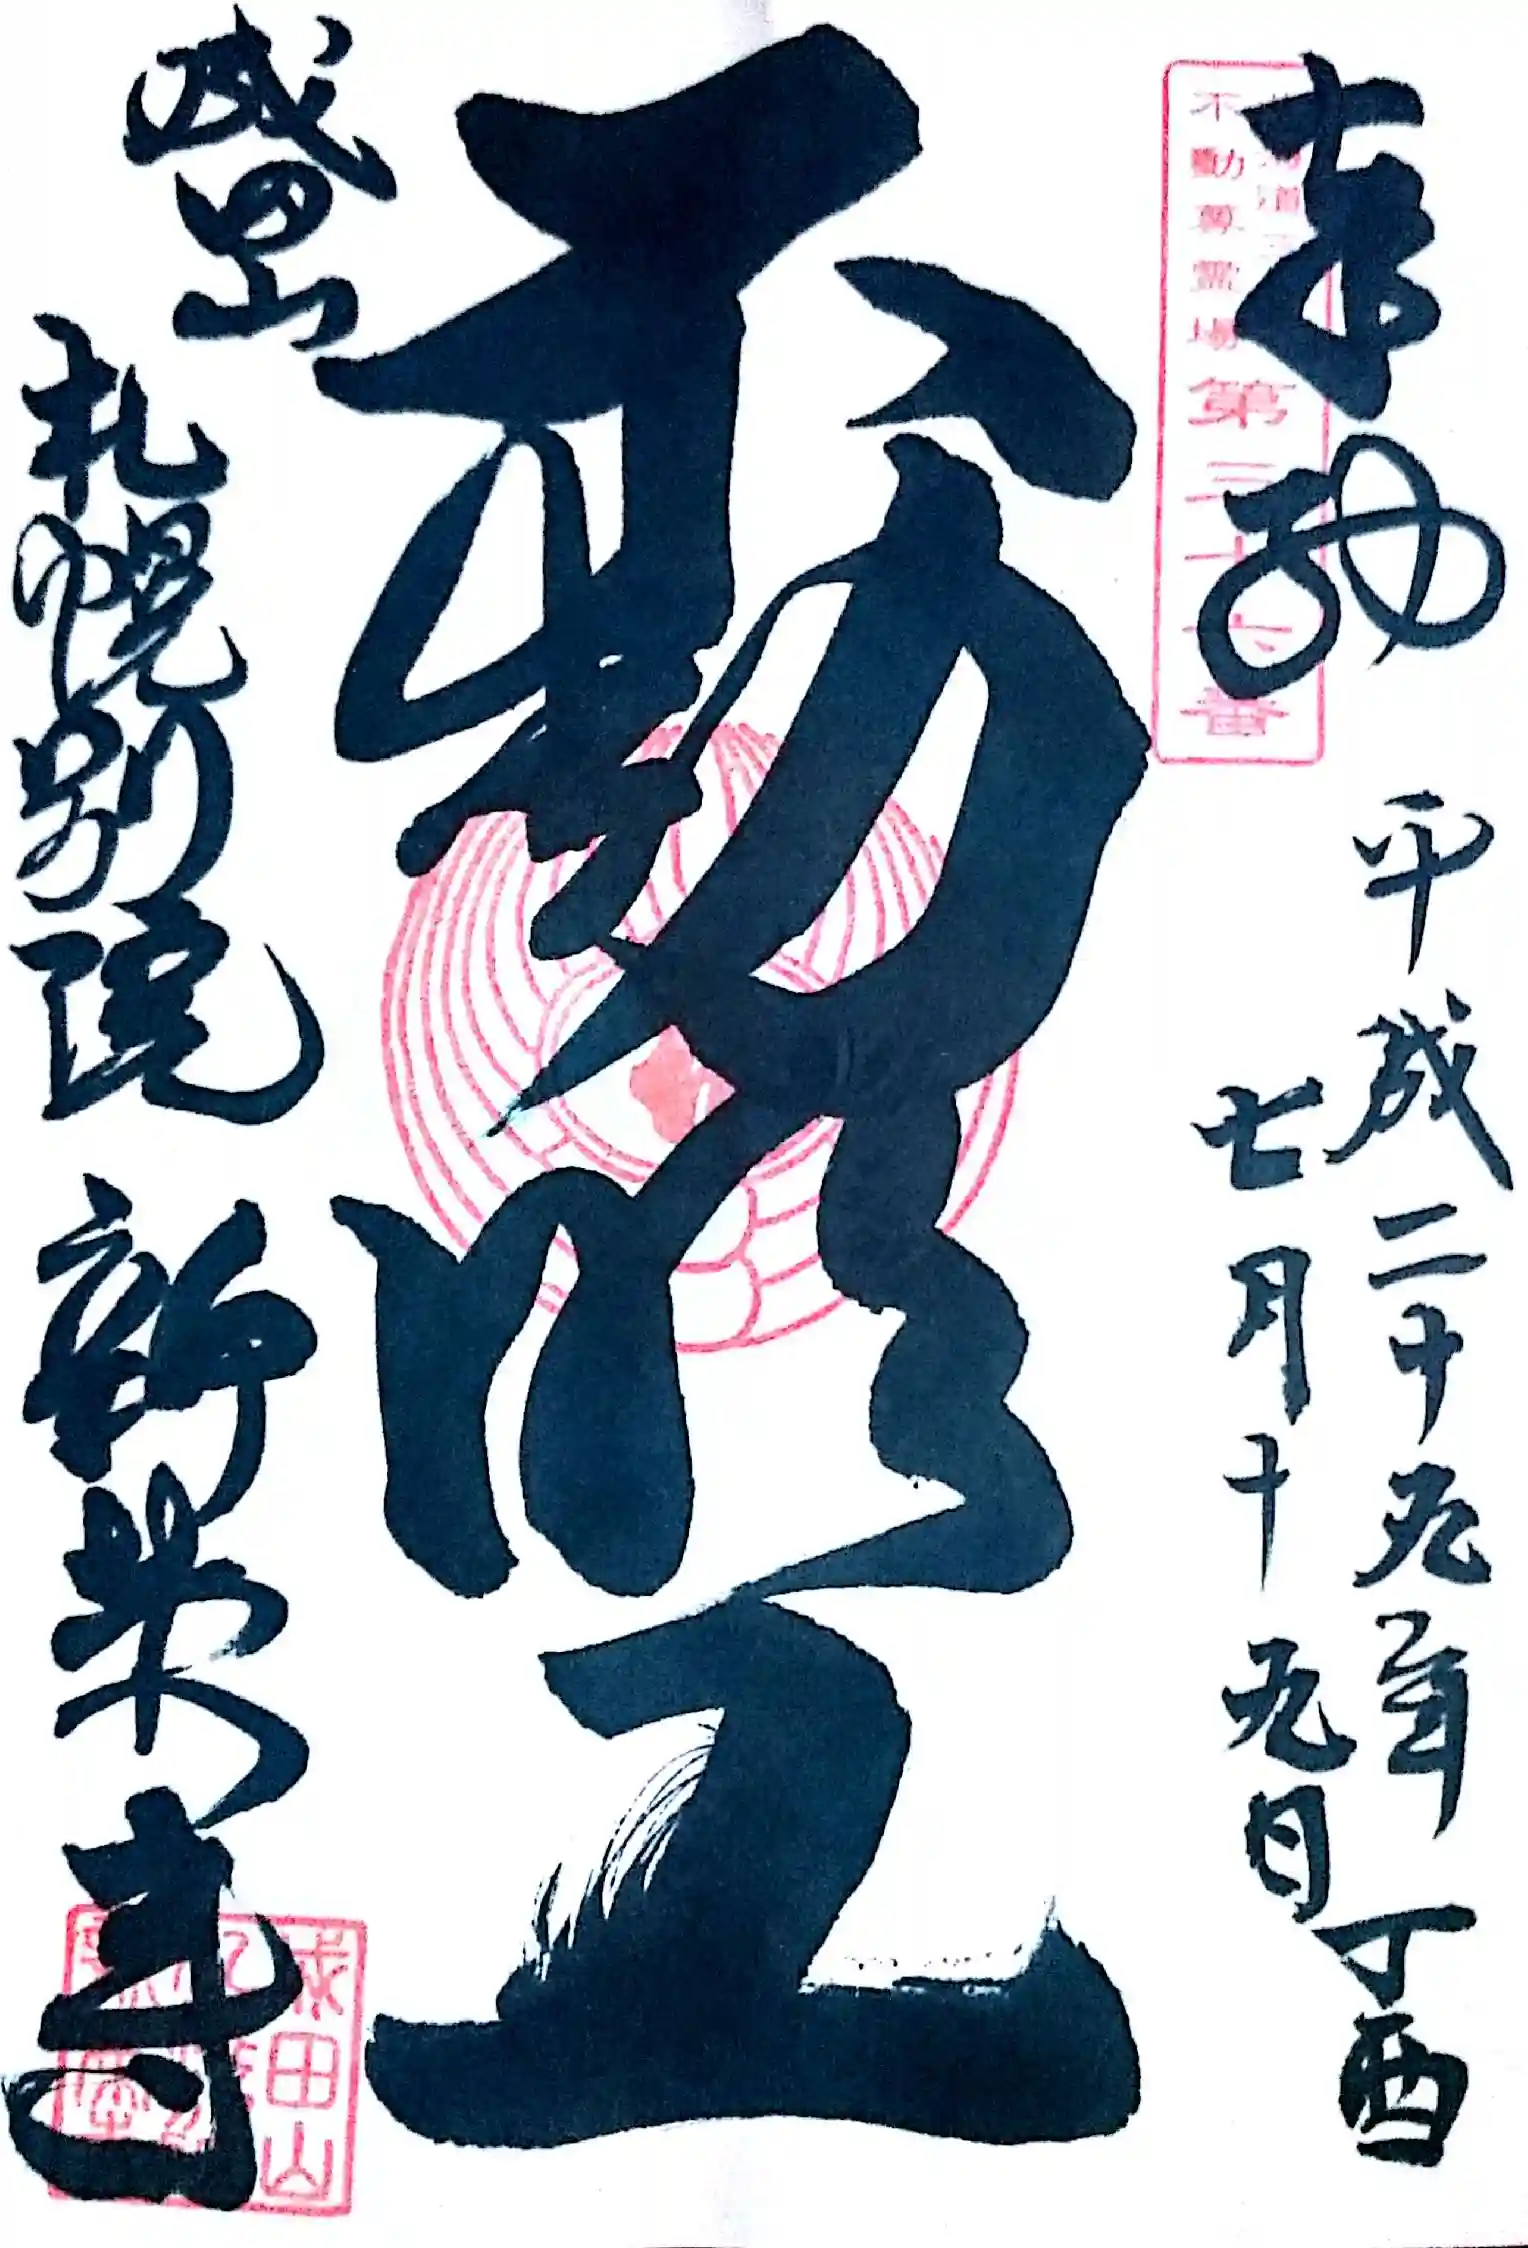 奉拝
平成二十九年丁酉
七月十九日
不動尊霊場第三十六番
不動明王
成田山
札幌別院新栄寺
成田山